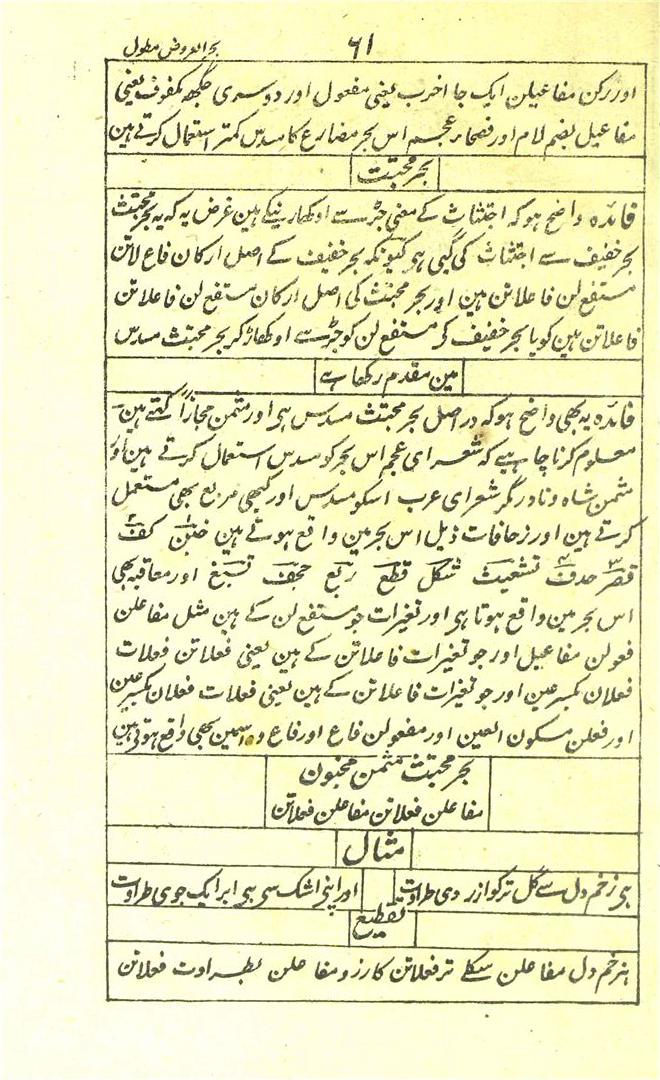 بحر العروض مطول
۶۱
اور رکن مفاعیلن ایک جا اخرب یعنی مفعول اور دوسری جگھ مکفوف یعنی
مفاعیل بضم لام اور فصحاء عجم اس بحر مضارع کا مسدس کمتر استعمال کرتے ہین
بحر مجتث
فائدہ واضح ہو کہ اجتثاث کے معنی جڑ سے اوکھاڑنیکے ہین غرض یہ کہ یہ بحر مجتث
بحر خفیف سے اجتثاث کی گیی ہو کیونکہ بحر خفیف کے اصل ارکان فاعلاتن
مستفع لن فاعلاتن ہین اور بحر مجتث کی اصل ارکان مستفع لن فاعلاتن
فاعلاتن ہین گویا بحر خفیف کے مستفع لن کو جڑ سے اوکھاڑ کر بحر مجتث مسدس
مین مقدم رکھا ہے
فائدہ یہ بھی واضح ہو کہ دراصل بحر مجتث مسدس ہی اور مثمن مجازاً کہتے ہین
معلوم کرنا چاہیے کہ شعرای عجم اس بحر کو مسدس استعمال کرتے ہین اور
مثمن شاذ و نادر مگر شعرای عرب اسکو مسدس اور کبھی مربع بھی مستعمل
کرتے ہین اور زحافات ذیل اس بحر مین واقع ہوتے ہین خبن کف
قصر حذف تشعیث شکل قطع ربع جحف تسبغ اور معاقبہ بھی
اس بحر مین واقع ہوتا ہی اور تغیرات جو مستفع لن کے ہین مثل مفاعلن
فعولن مفاعیل اور جو تغیرات فاعلاتن کے ہین یعنی فعلاتن فعلات
فعلان بکسر عین اور جو تغیرات فاعلاتن کے ہین یعنی فعلات فعلان بکسر عین
اور فعلن مسکون العین اور مفعولن فاع اور فاع و اسمین بھی واقع ہوتی ہین
بحر مجتث مثمن مخبون
مفاعلن فعلاتن مفاعلن فعلاتن
مثال
ہی زخم دل سے گل تر کو ازردی طراوت اور اپنی اشک سی ہی ابر ایک جوی طراوت
تقطیع
ہزخم دل مفاعلن سگلے تر فعلاتن کارزو مفاعلن بطراوت فعلاتن